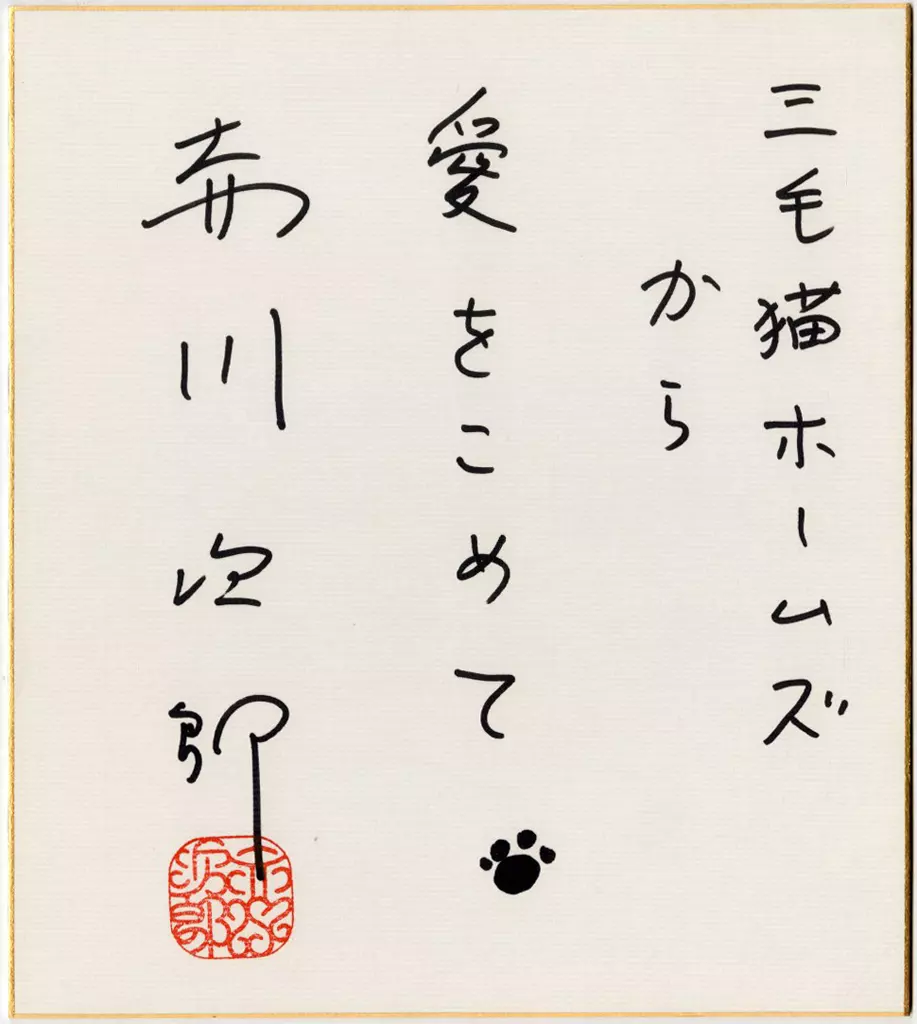 三毛猫ホームズ
から
愛をこめて
赤川次郎